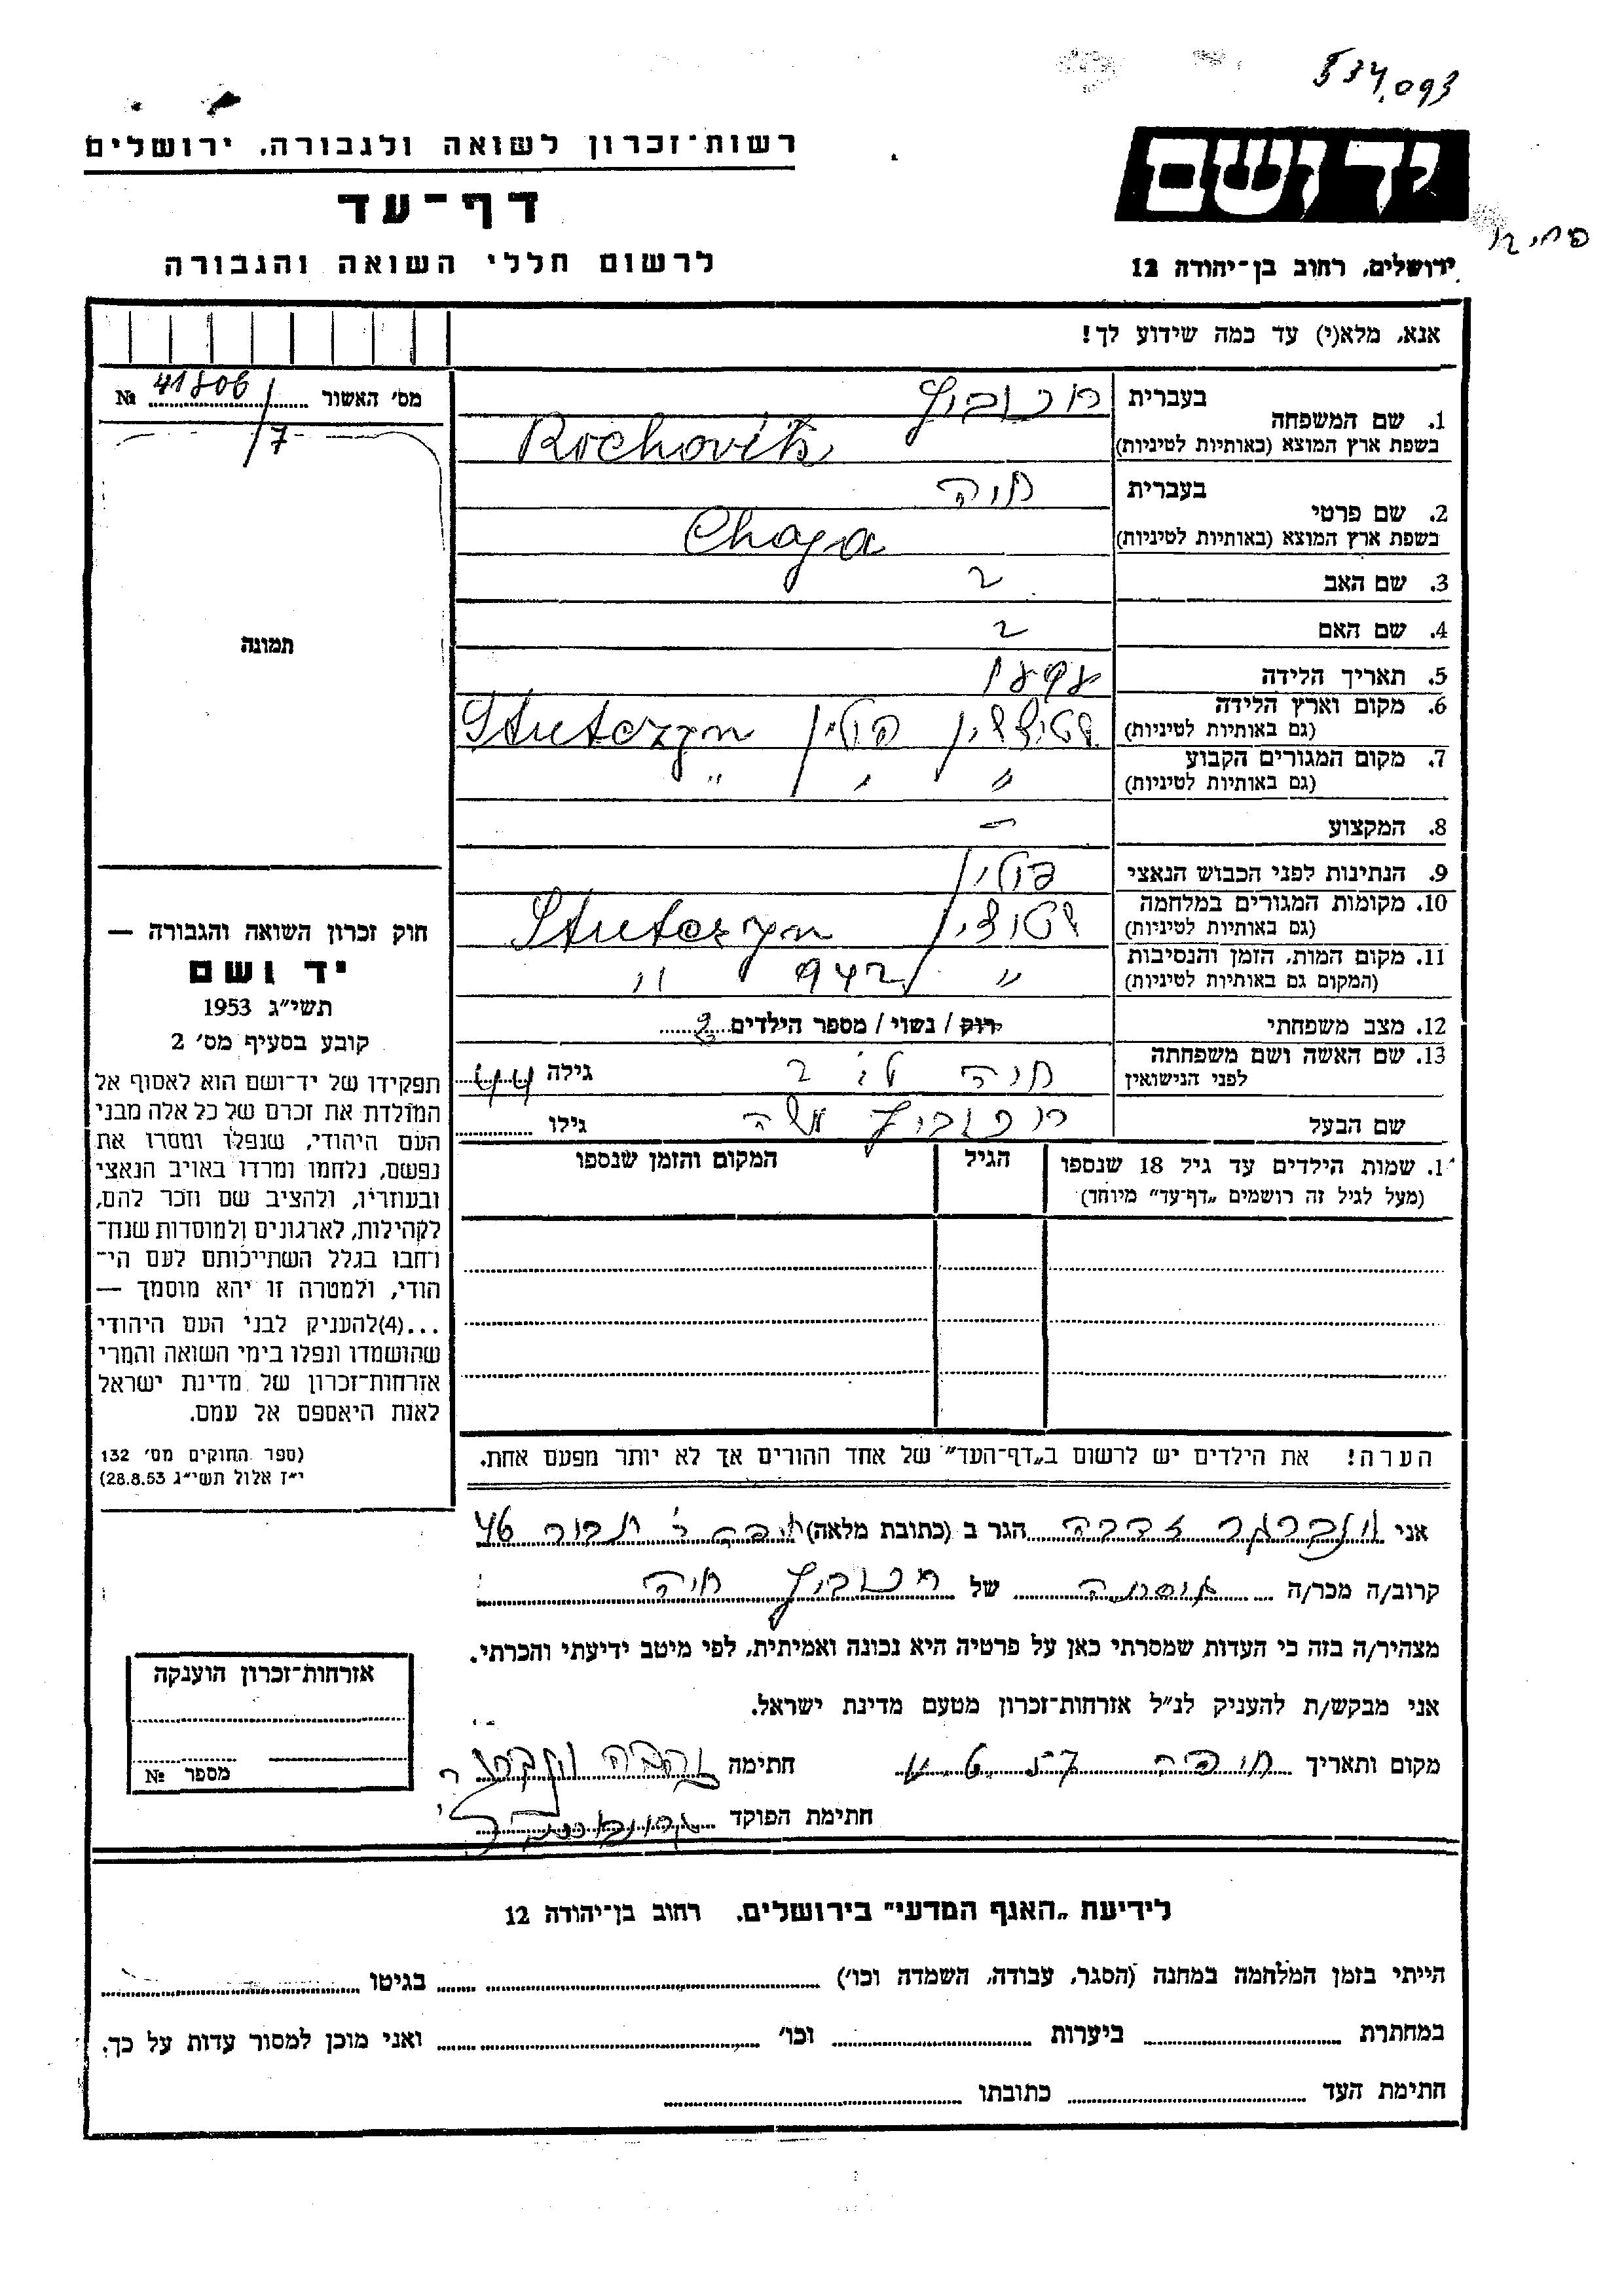 534,093
רשות־זכרון לשואה ולגבורה, ירושלים
יד ושם
דף־עד
לרשום חללי השואה והגבורה
ירושלים, רחוב בן־יהודה 12
אנא, מלא(י) עד כמה שידוע לך!
מס׳ האשור № 41806/7
1. שם המשפחה
בעברית רכוביץ
בשפת ארץ המוצא (באותיות לטיניות) Rochovitz
2. שם פרטי
בעברית חיה
בשפת ארץ המוצא (באותיות לטיניות) Chaja
3. שם האב ?
4. שם האם ?
5. תאריך הלידה
6. מקום וארץ הלידה
(גם באותיות לטיניות) פולין
7. מקום המגורים הקבוע
(גם באותיות לטיניות) ״ ״ ״
8. המקצוע –
9. הנתינות לפני הכבוש הנאצי פולין
10. מקומות המגורים במלחמה
(גם באותיות לטיניות)
11. מקום המות, הזמן והנסיבות
(המקום גם באותיות לטיניות) ״ 942 ״
12. מצב משפחתי רוק / נשוי / מספר הילדים
13. שם האשה ושם משפחתה
לפני הנישואין חיה גילה 44
שם הבעל רכוביץ משה גילו
תמונה
חוק זכרון השואה והגבורה —
יד ושם
תשי״ג 1953
קובע בסעיף מס׳ 2
תפקידו של יד־ושם הוא לאסוף אל
המולדת את זכרם של כל אלה מבני
העם היהודי, שנפלו ומסרו את
נפשם, נלחמו ומרדו באויב הנאצי
ובעוזריו, ולהציב שם וזכר להם,
לקהילות, לארגונים ולמוסדות שנח־
רחבו בגלל השתייכותם לעם הי־
הודי, ולמטרה זו יהא מוסמך —
...(4)להעניק לבני העם היהודי
שהושמדו ונפלו בימי השואה והמרי
אזרחות־זכרון של מדינת ישראל
לאות היאספם אל עמם.
(ספר החוקים מס׳ 132
י״ז אלול תשי״ג 28.8.53)
1. שמות הילדים עד גיל 18 שנספו
(מעל לגיל זה רושמים „דף־עד״ מיוחד)
הגיל
המקום והזמן שנספו
הערה! את הילדים יש לרשום ב„דף־העד״ של אחד ההורים אך לא יותר מפעם אחת.
אני זהבה הגר ב (כתובת מלאה)
קרוב/ה מכר/ה של רכוביץ חיה
מצהיר/ה בזה כי העדות שמסרתי כאן על פרטיה היא נכונה ואמיתית, לפי מיטב ידיעתי והכרתי.
אני מבקש/ת להעניק לנ״ל אזרחות־זכרון מטעם מדינת ישראל.
מקום ותאריך חיפה חתימה זהבה
חתימת הפוקד
אזרחות־זכרון הוענקה
מספר №
לידיעת „האגף המדעי״ בירושלים, רחוב בן־יהודה 12
הייתי בזמן המלחמה במחנה (הסגר, עבודה, השמדה וכו׳) בגיטו
במחתרת ביערות וכו׳ ואני מוכן למסור עדות על כך.
חתימת העד כתובתו